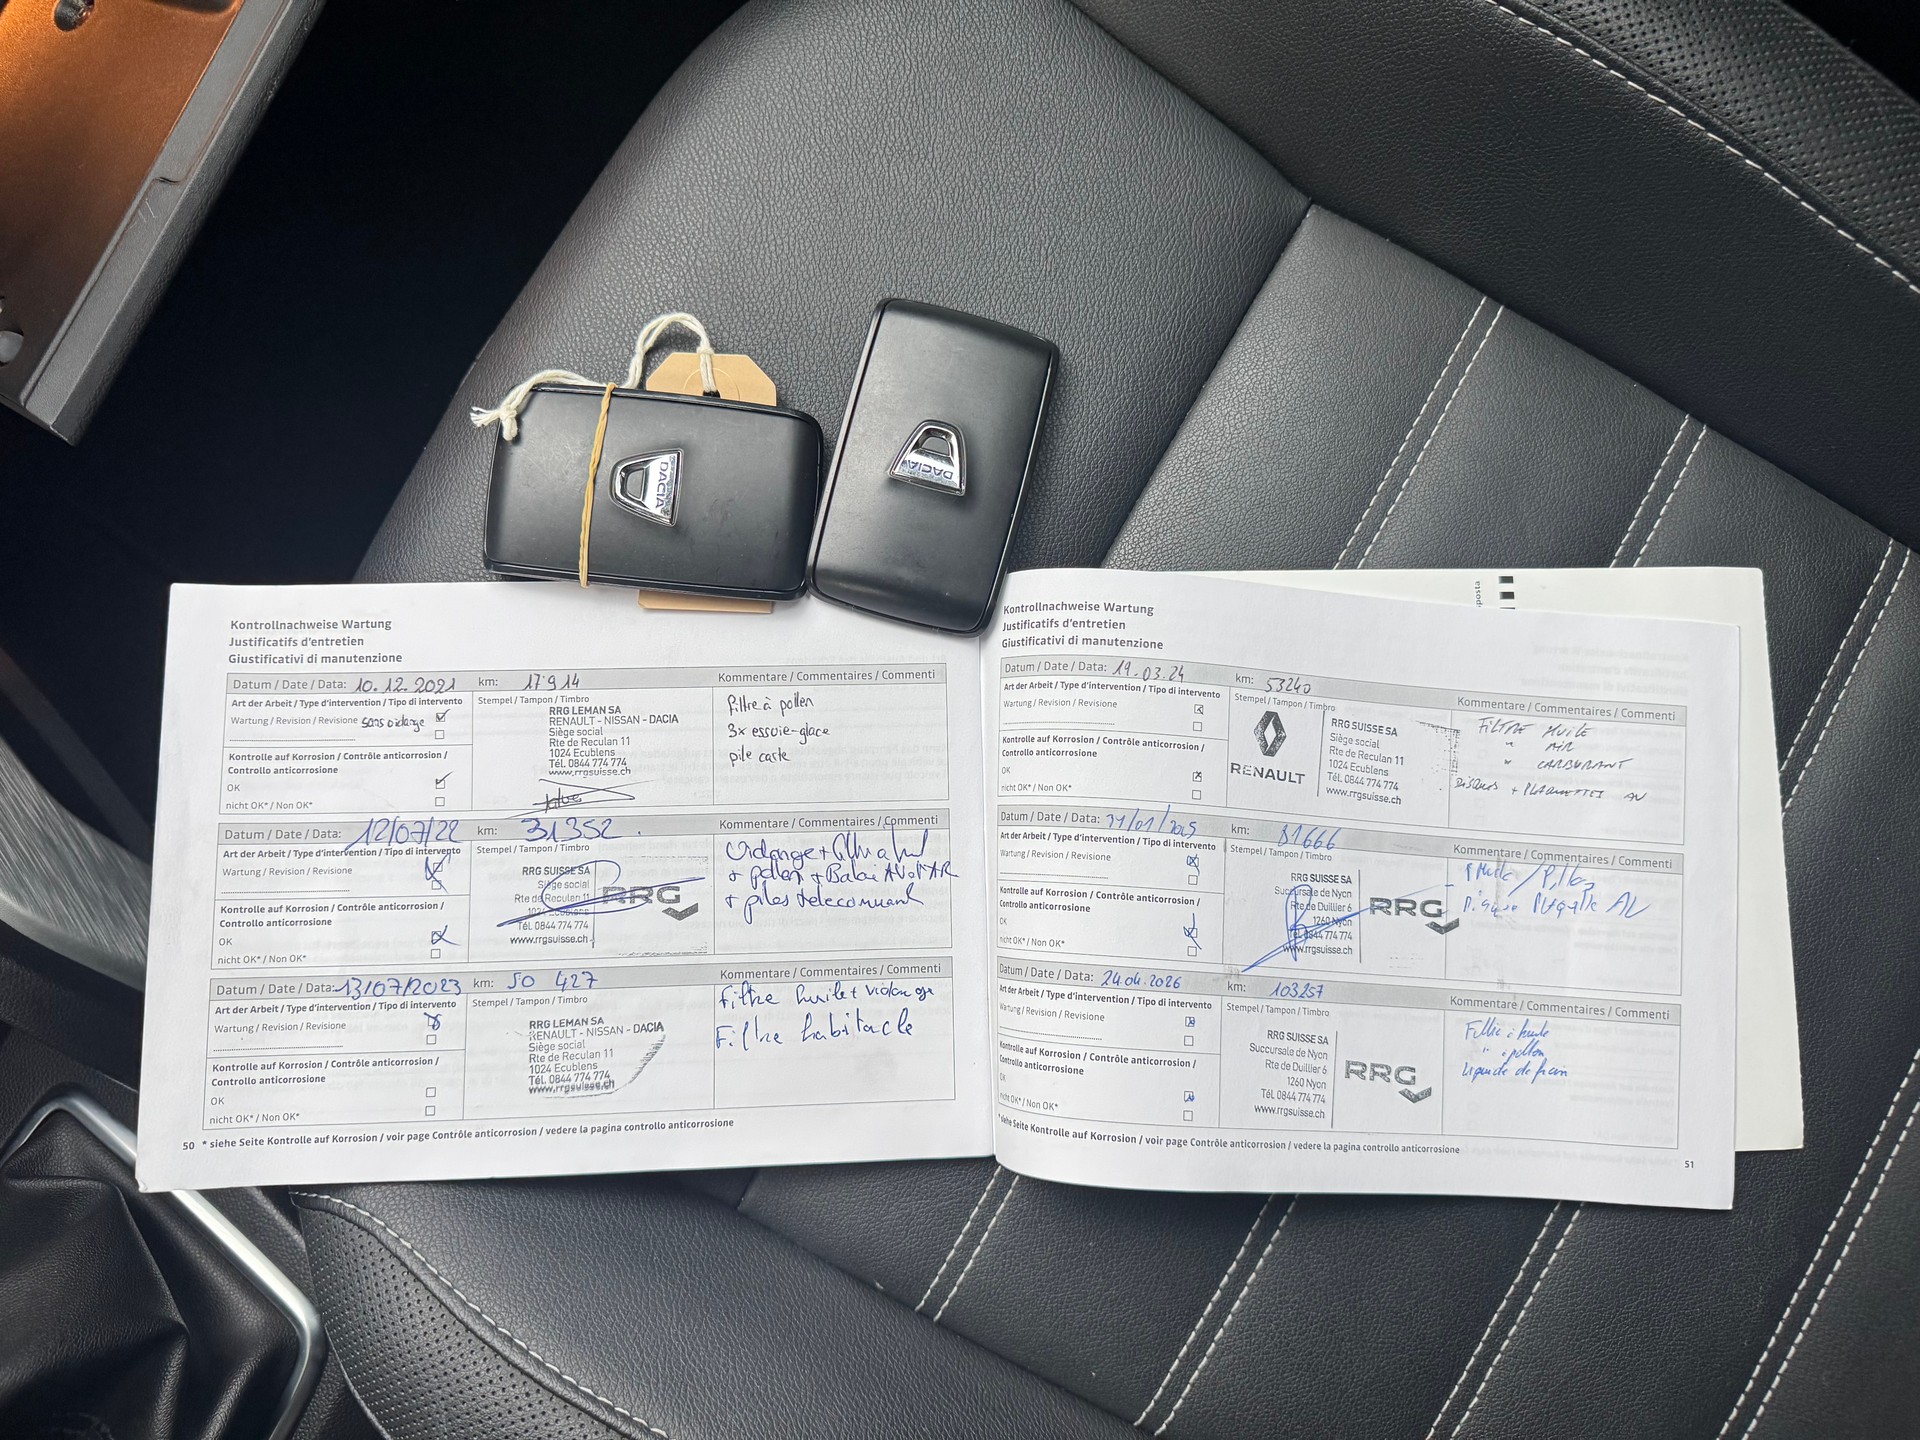 DACIA
DACIA
Kontrollnachweise Wartung
Justificatifs d'entretien
Giustificativi di manutenzione
Datum / Date / Data: 10.12.2021 km: 17914 Kommentare / Commentaires / Commenti
Art der Arbeit / Type d'intervention / Tipo di intervento
Wartung / Revision / Revisione sans vidange
Kontrolle auf Korrosion / Contrôle anticorrosion /
Controllo anticorrosione
OK
nicht OK* / Non OK*
Stempel / Tampon / Timbro
RRG LEMAN SA
RENAULT - NISSAN - DACIA
Siège social
Rte de Reculan 11
1024 Ecublens
Tél. 0844 774 774
www.rrgsuisse.ch
filtre à pollen
3x essuie-glace
pile carte
Datum / Date / Data: 12/07/22 km: 31352 Kommentare / Commentaires / Commenti
Art der Arbeit / Type d'intervention / Tipo di intervento
Wartung / Revision / Revisione
Kontrolle auf Korrosion / Contrôle anticorrosion /
Controllo anticorrosione
OK
nicht OK* / Non OK*
Stempel / Tampon / Timbro
RRG SUISSE SA
Siège social
Rte de Reculan 11
1024 Ecublens
Tél. 0844 774 774
www.rrgsuisse.ch
RRG
Vidange +
+ pollen + Balai AV + AR
+ piles telecommand
Datum / Date / Data: 13/07/2023 km: 50 427 Kommentare / Commentaires / Commenti
Art der Arbeit / Type d'intervention / Tipo di intervento
Wartung / Revision / Revisione
Kontrolle auf Korrosion / Contrôle anticorrosion /
Controllo anticorrosione
OK
nicht OK* / Non OK*
Stempel / Tampon / Timbro
RRG LEMAN SA
RENAULT - NISSAN - DACIA
Siège social
Rte de Reculan 11
1024 Ecublens
Tél. 0844 774 774
www.rrgsuisse.ch
Filtre huile + vidange
Filtre habitacle
50 * siehe Seite Kontrolle auf Korrosion / voir page Contrôle anticorrosion / vedere la pagina controllo anticorrosione
Kontrollnachweise Wartung
Justificatifs d'entretien
Giustificativi di manutenzione
Datum / Date / Data: 19.03.24 km: 53240 Kommentare / Commentaires / Commenti
Art der Arbeit / Type d'intervention / Tipo di intervento
Wartung / Revision / Revisione
Kontrolle auf Korrosion / Contrôle anticorrosion /
Controllo anticorrosione
OK
nicht OK* / Non OK*
Stempel / Tampon / Timbro
RENAULT
RRG SUISSE SA
Siège social
Rte de Reculan 11
1024 Ecublens
Tél. 0844 774 774
www.rrgsuisse.ch
FILTRE HUILE
" AIR
" CARBURANT
DISQUES + PLAQUETTES AV
Datum / Date / Data: km: 81666 Kommentare / Commentaires / Commenti
Art der Arbeit / Type d'intervention / Tipo di intervento
Wartung / Revision / Revisione
Kontrolle auf Korrosion / Contrôle anticorrosion /
Controllo anticorrosione
OK
nicht OK* / Non OK*
Stempel / Tampon / Timbro
RRG SUISSE SA
Succursale de Nyon
Rte de Duillier 6
1260 Nyon
Tél. 0844 774 774
www.rrgsuisse.ch
RRG
AV
Datum / Date / Data: 24.04.2026 km: 103257 Kommentare / Commentaires / Commenti
Art der Arbeit / Type d'intervention / Tipo di intervento
Wartung / Revision / Revisione
Kontrolle auf Korrosion / Contrôle anticorrosion /
Controllo anticorrosione
OK
nicht OK* / Non OK*
Stempel / Tampon / Timbro
RRG SUISSE SA
Succursale de Nyon
Rte de Duillier 6
1260 Nyon
Tél. 0844 774 774
www.rrgsuisse.ch
RRG
Filtre à huile
" à pollen
Liquide de frein
* siehe Seite Kontrolle auf Korrosion / voir page Contrôle anticorrosion / vedere la pagina controllo anticorrosione
51